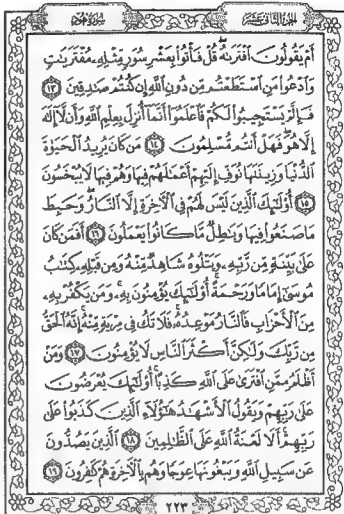 سُورَةُ هُودٍ
الجزء الثاني عشر
أَمْ يَقُولُونَ ٱفْتَرَىٰهُ ۖ قُلْ فَأْتُوا۟ بِعَشْرِ سُوَرٍ مِّثْلِهِۦ مُفْتَرَيَٰتٍ
وَٱدْعُوا۟ مَنِ ٱسْتَطَعْتُم مِّن دُونِ ٱللَّهِ إِن كُنتُمْ صَٰدِقِينَ ١٣
فَإِلَّمْ يَسْتَجِيبُوا۟ لَكُمْ فَٱعْلَمُوٓا۟ أَنَّمَآ أُنزِلَ بِعِلْمِ ٱللَّهِ وَأَن لَّآ إِلَٰهَ
إِلَّا هُوَ ۖ فَهَلْ أَنتُم مُّسْلِمُونَ ١٤ مَن كَانَ يُرِيدُ ٱلْحَيَوٰةَ
ٱلدُّنْيَا وَزِينَتَهَا نُوَفِّ إِلَيْهِمْ أَعْمَٰلَهُمْ فِيهَا وَهُمْ فِيهَا لَا يُبْخَسُونَ
١٥ أُو۟لَٰٓئِكَ ٱلَّذِينَ لَيْسَ لَهُمْ فِى ٱلْءَاخِرَةِ إِلَّا ٱلنَّارُ ۖ وَحَبِطَ
مَا صَنَعُوا۟ فِيهَا وَبَٰطِلٌ مَّا كَانُوا۟ يَعْمَلُونَ ١٦ أَفَمَن كَانَ
عَلَىٰ بَيِّنَةٍ مِّن رَّبِّهِۦ وَيَتْلُوهُ شَاهِدٌ مِّنْهُ وَمِن قَبْلِهِۦ كِتَٰبُ
مُوسَىٰٓ إِمَامًا وَرَحْمَةً ۚ أُو۟لَٰٓئِكَ يُؤْمِنُونَ بِهِۦ ۚ وَمَن يَكْفُرْ بِهِۦ
مِنَ ٱلْأَحْزَابِ فَٱلنَّارُ مَوْعِدُهُۥ ۚ فَلَا تَكُ فِى مِرْيَةٍ مِّنْهُ ۚ إِنَّهُ ٱلْحَقُّ
مِن رَّبِّكَ وَلَٰكِنَّ أَكْثَرَ ٱلنَّاسِ لَا يُؤْمِنُونَ ١٧ وَمَنْ
أَظْلَمُ مِمَّنِ ٱفْتَرَىٰ عَلَى ٱللَّهِ كَذِبًا ۚ أُو۟لَٰٓئِكَ يُعْرَضُونَ
عَلَىٰ رَبِّهِمْ وَيَقُولُ ٱلْأَشْهَٰدُ هَٰٓؤُلَآءِ ٱلَّذِينَ كَذَبُوا۟ عَلَىٰ
رَبِّهِمْ ۚ أَلَا لَعْنَةُ ٱللَّهِ عَلَى ٱلظَّٰلِمِينَ ١٨ ٱلَّذِينَ يَصُدُّونَ
عَن سَبِيلِ ٱللَّهِ وَيَبْغُونَهَا عِوَجًا وَهُم بِٱلْءَاخِرَةِ هُمْ كَٰفِرُونَ ١٩
٢٢٣